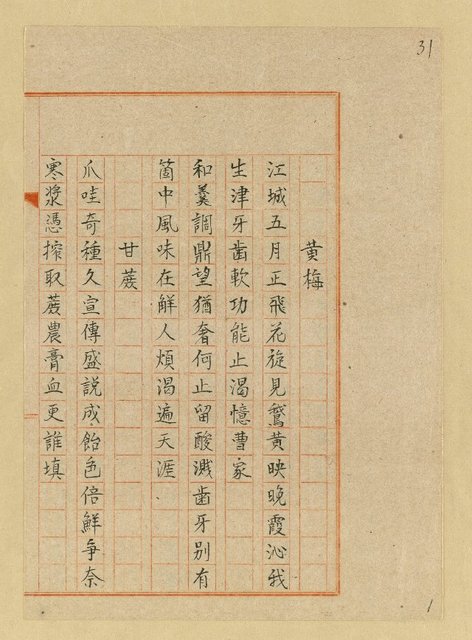 31
黄梅
江城五月正飛花旋見鵞黄映晚霞沁我
生津牙齒軟功能止渴憶曹家
和羹調鼎望猶奢何止留酸濺齒牙别有
箇中風味在鮮人煩渴遍天涯
甘蔗
爪哇奇種久宣傳盛説成飴色倍鮮爭奈
寒漿憑搾取蔗農膏血更誰填
1